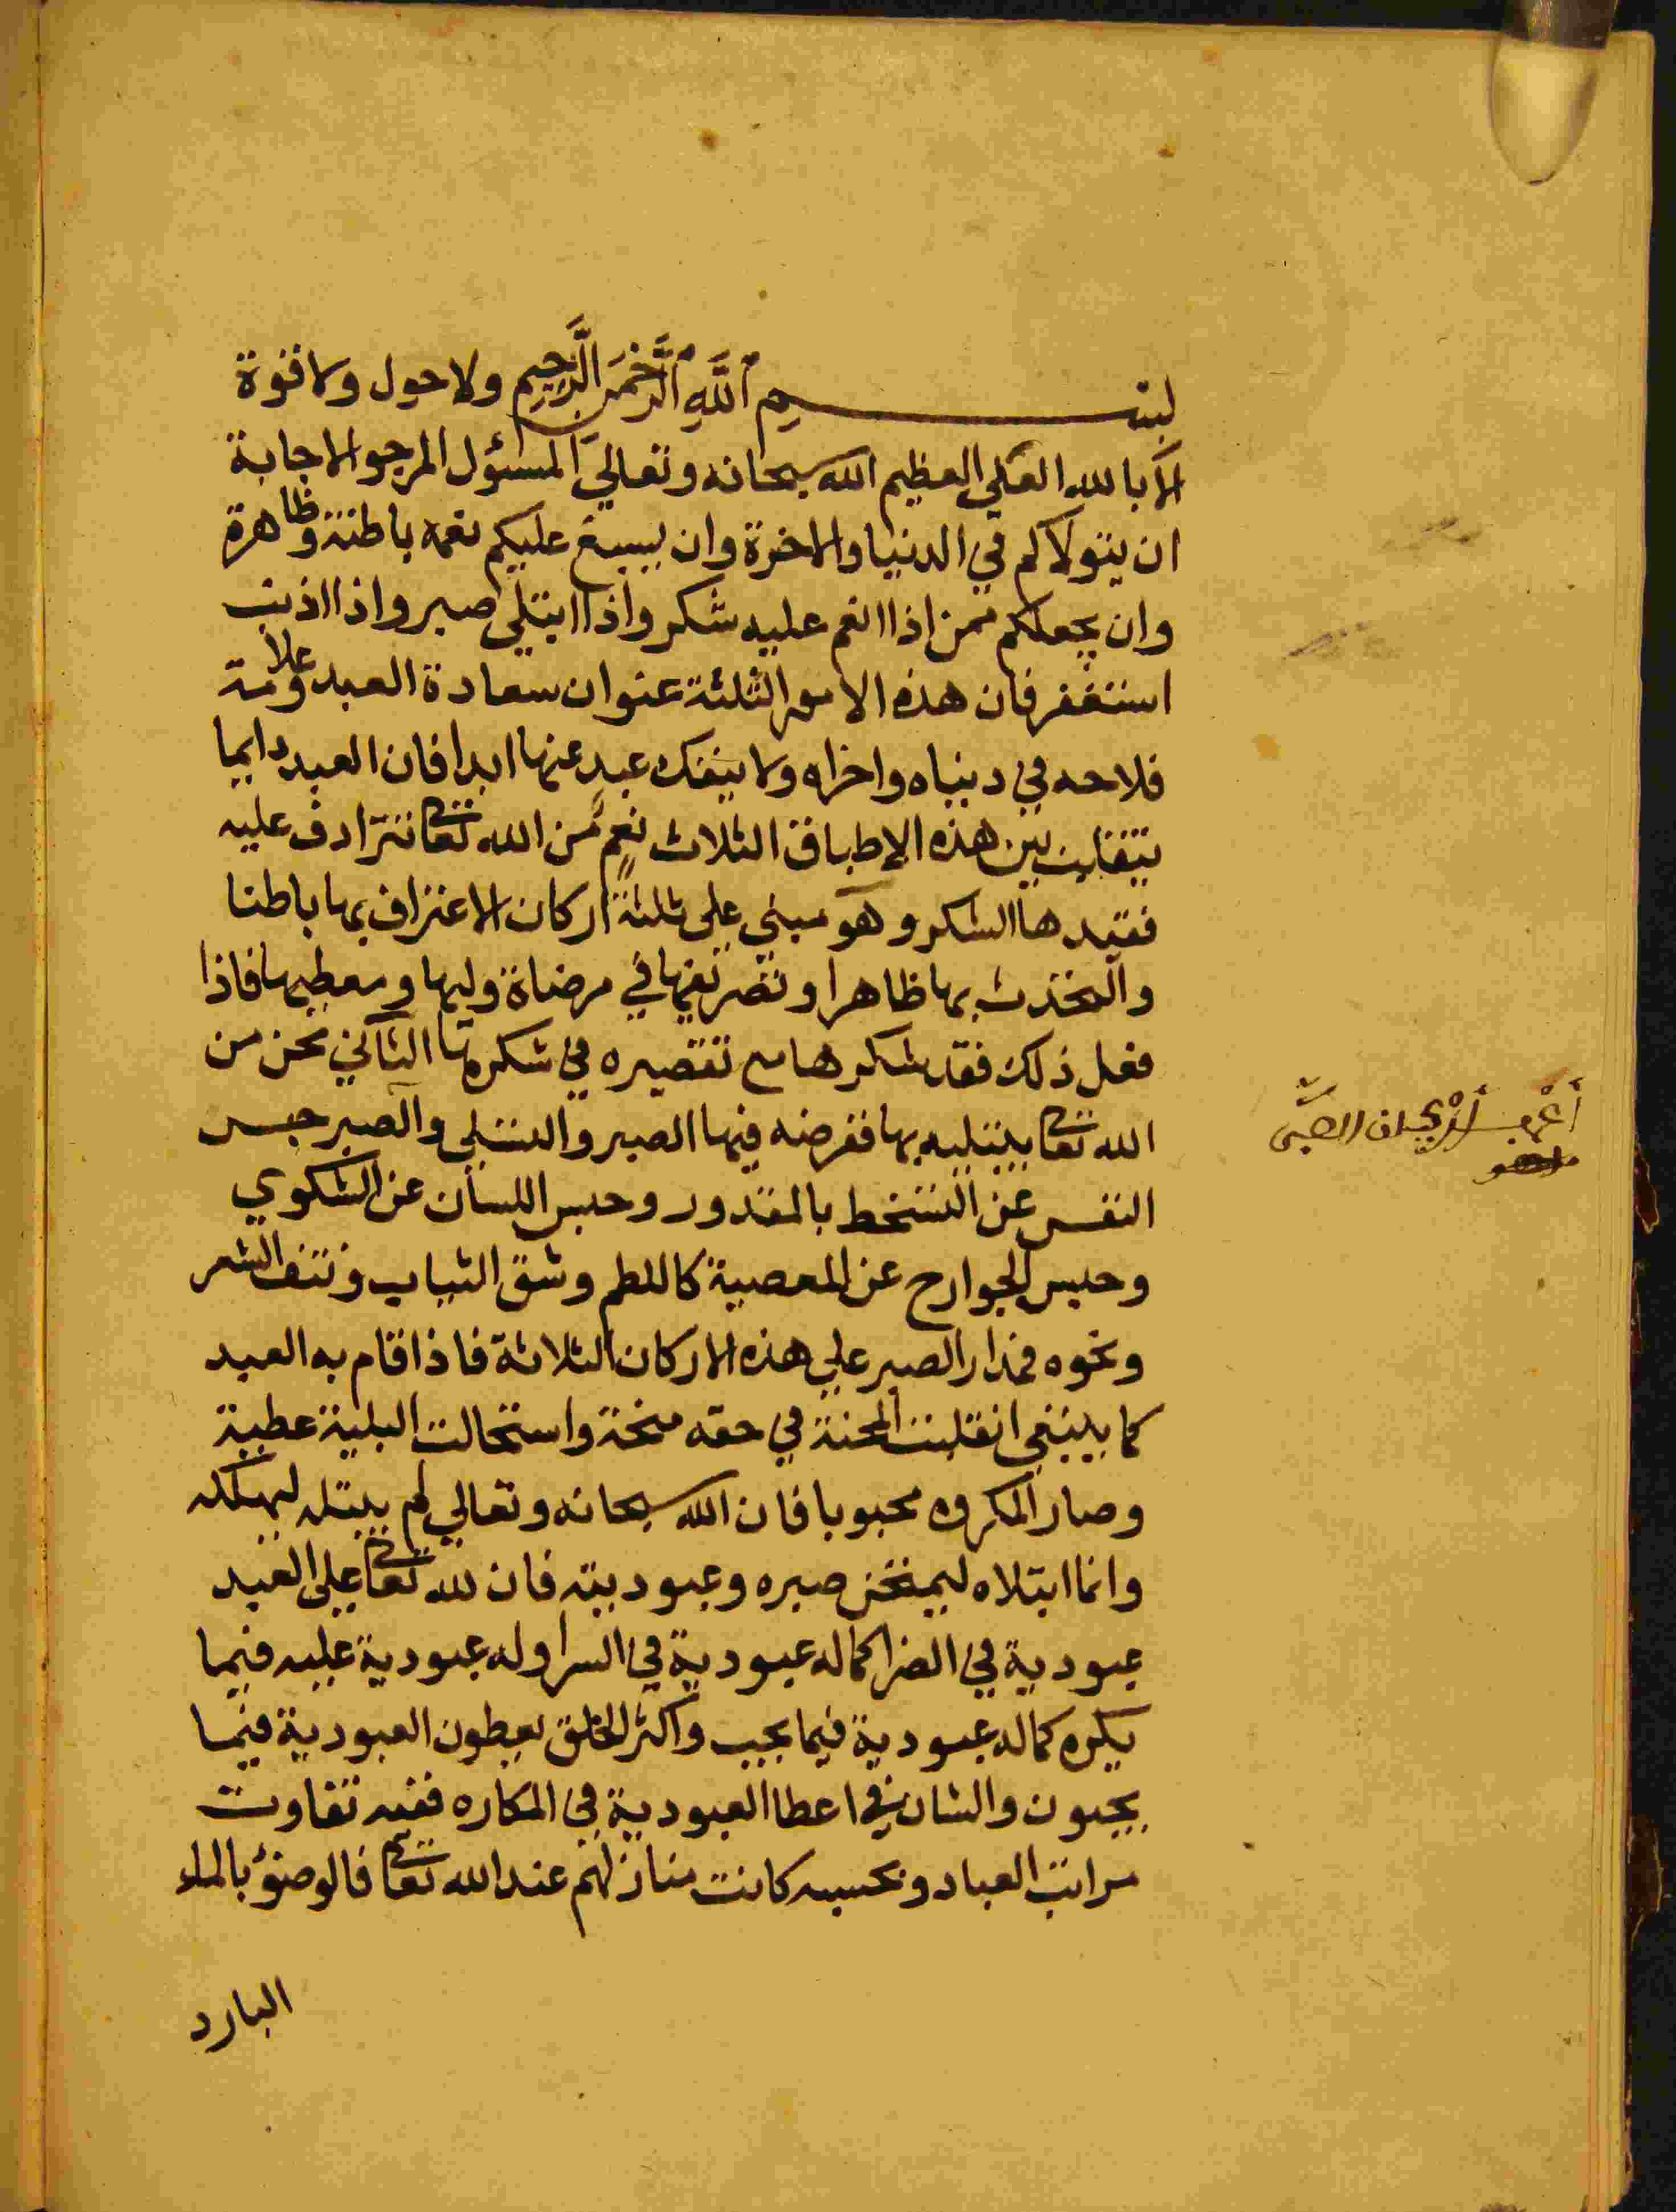 بسم الله الرحمن الرحيم ولا حول ولا قوة
الا بالله العلي العظيم الله سبحانه وتعالي المسؤل المرجو الاجابة
ان يتولاكم في الدنيا والاخرة وان يسبغ عليكم نعمه باطنة وظاهرة
وان يجعلكم ممن اذا انعم عليه شكر واذا ابتلي صبر واذا اذنب
استغفر فان هذه الامور الثلثة عنوان سعادة العبد وعلامة
فلاحه في دنياه واخراه ولا ينفك عبد عنها ابدا فان العبد دايما
يتقلب بين هذه الاطباق الثلاث نعم من الله تعالى تترادف عليه
فقيدها الشكر وهو مبني على ثلثة اركان الاعتراف بها باطنا
والتحدث بها ظاهرا وتصريفها في مرضاة وليها ومعطيها فاذا
فعل ذلك فقد شكرها مع تقصيره في شكرها الثاني محن من
الله تعالى يبتليه بها ففرضه فيها الصبر والتسلي والصبر حبس
النفس عن التسخط بالمقدور وحبس اللسان عن الشكوي
وحبس الجوارح عن المعصية كاللطم وشق الثياب ونتف الشعر
ونحوه فمدار الصبر علي هذه الاركان الثلاثة فاذا قام به العبد
كما ينبغي انقلبت المحنة في حقه منحة واستحالت البلية عطية
وصار المكروه محبوبا فان الله سبحانه وتعالي لم يبتله ليهلكه
وانما ابتلاه ليمتحن صبره وعبوديته فان لله تعالى على العبد
عبودية في الضرا كما له عبودية في السرا وله عبودية عليه فيما
يكره كما له عبودية فيما يحب واكثر الخلق يعطون العبودية فيما
يحبون والشان في اعطا العبودية في المكاره ففيه تفاوت
مراتب العباد وبحسبه كانت منازلهم عند الله تعالى فالوضوء بالماء
البارد